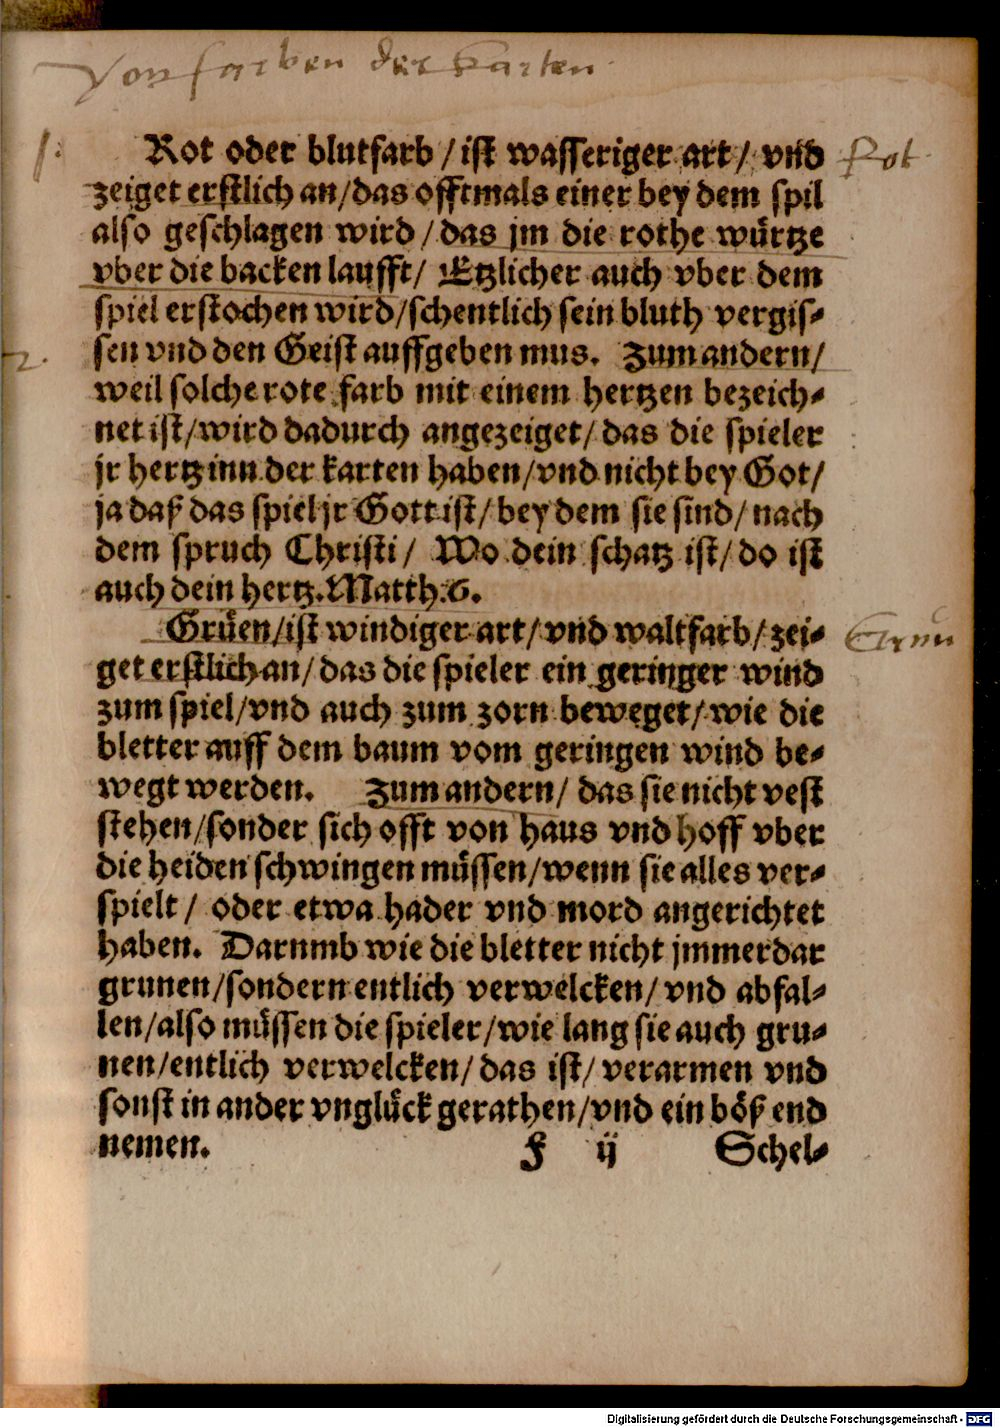 Von farben der karten
1. Rot oder blutfarb / ist wasseriger art / vnd Rot
zeiget erstlich an / das offtmals einer bey dem spil
also geschlagen wird / das jm die rothe würtze
vber die backen laufft / Etzlicher auch vber dem
spiel erstochen wird / schentlich sein bluth vergis⸗
2. sen vnd den Geist auffgeben mus. Zum andern /
weil solche rote farb mit einem hertzen bezeich⸗
net ist / wird dadurch angezeiget / das die spieler
jr hertz inn der karten haben / vnd nicht bey Got /
ja daß das spiel jr Gott ist / bey dem sie sind / nach
dem spruch Christi / Wo dein schatz ist / do ist
auch dein hertz. Matth. 6.
Grüen / ist windiger art / vnd waltfarb / zei⸗ Grun
get erstlich an / das die spieler ein geringer wind
zum spiel / vnd auch zum zorn beweget / wie die
bletter auff dem baum vom geringen wind be⸗
wegt werden. Zum andern / das sie nicht vest
stehen / sonder sich offt von haus vnd hoff vber
die heiden schwingen müssen / wenn sie alles ver⸗
spielt / oder etwa hader vnd mord angerichtet
haben. Darnmb wie die bletter nicht jmmerdar
grunen / sondern entlich verwelcken / vnd abfal⸗
len / also müssen die spieler / wie lang sie auch gru⸗
nen / entlich verwelcken / das ist / verarmen vnd
sonst in ander vnglück gerathen / vnd ein böß end
nemen.
F ij Schel⸗
Digitalisierung gefördert durch die Deutsche Forschungsgemeinschaft - DFG